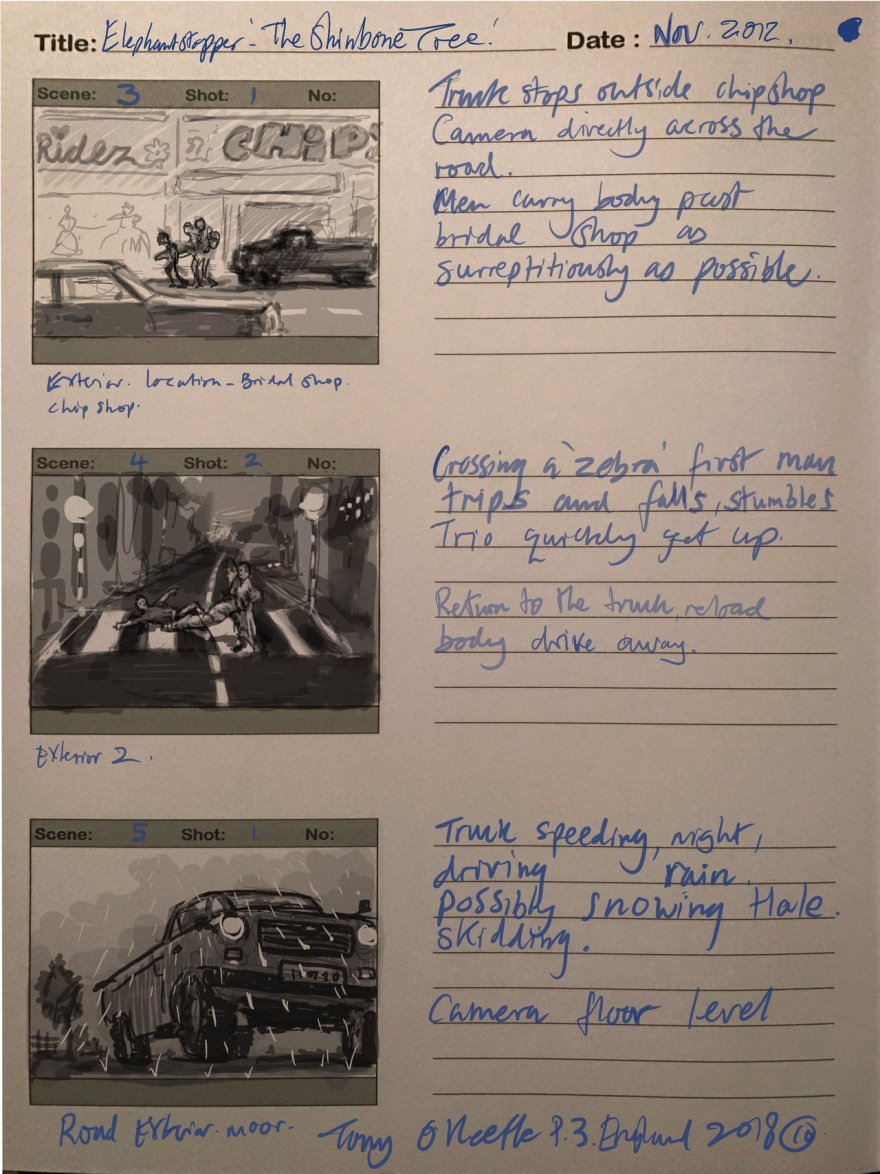 Title: Elephantstopper - 'The Shinbone Tree' Date : Nov. 2012.
Scene: 3 Shot: 1 No:
Ridez CHIPS
Truck stops outside chipshop
Camera directly across the
road.
Men carry body past
bridal shop as
surreptitiously as possible.
Exterior. location - Bridal shop.
chip shop.
Scene: 4 Shot: 2 No:
Crossing a 'zebra' first man
trips and falls, stumbles
Trio quickly get up.
Return to the truck, reload
body drive away.
Exterior 2.
Scene: 5 Shot: 1 No:
Truck speeding, night,
driving rain.
possibly snowing Hale.
skidding.
Camera floor level
Road Exterior. moor. Tony O'Keeffe P.3. England 2018 10